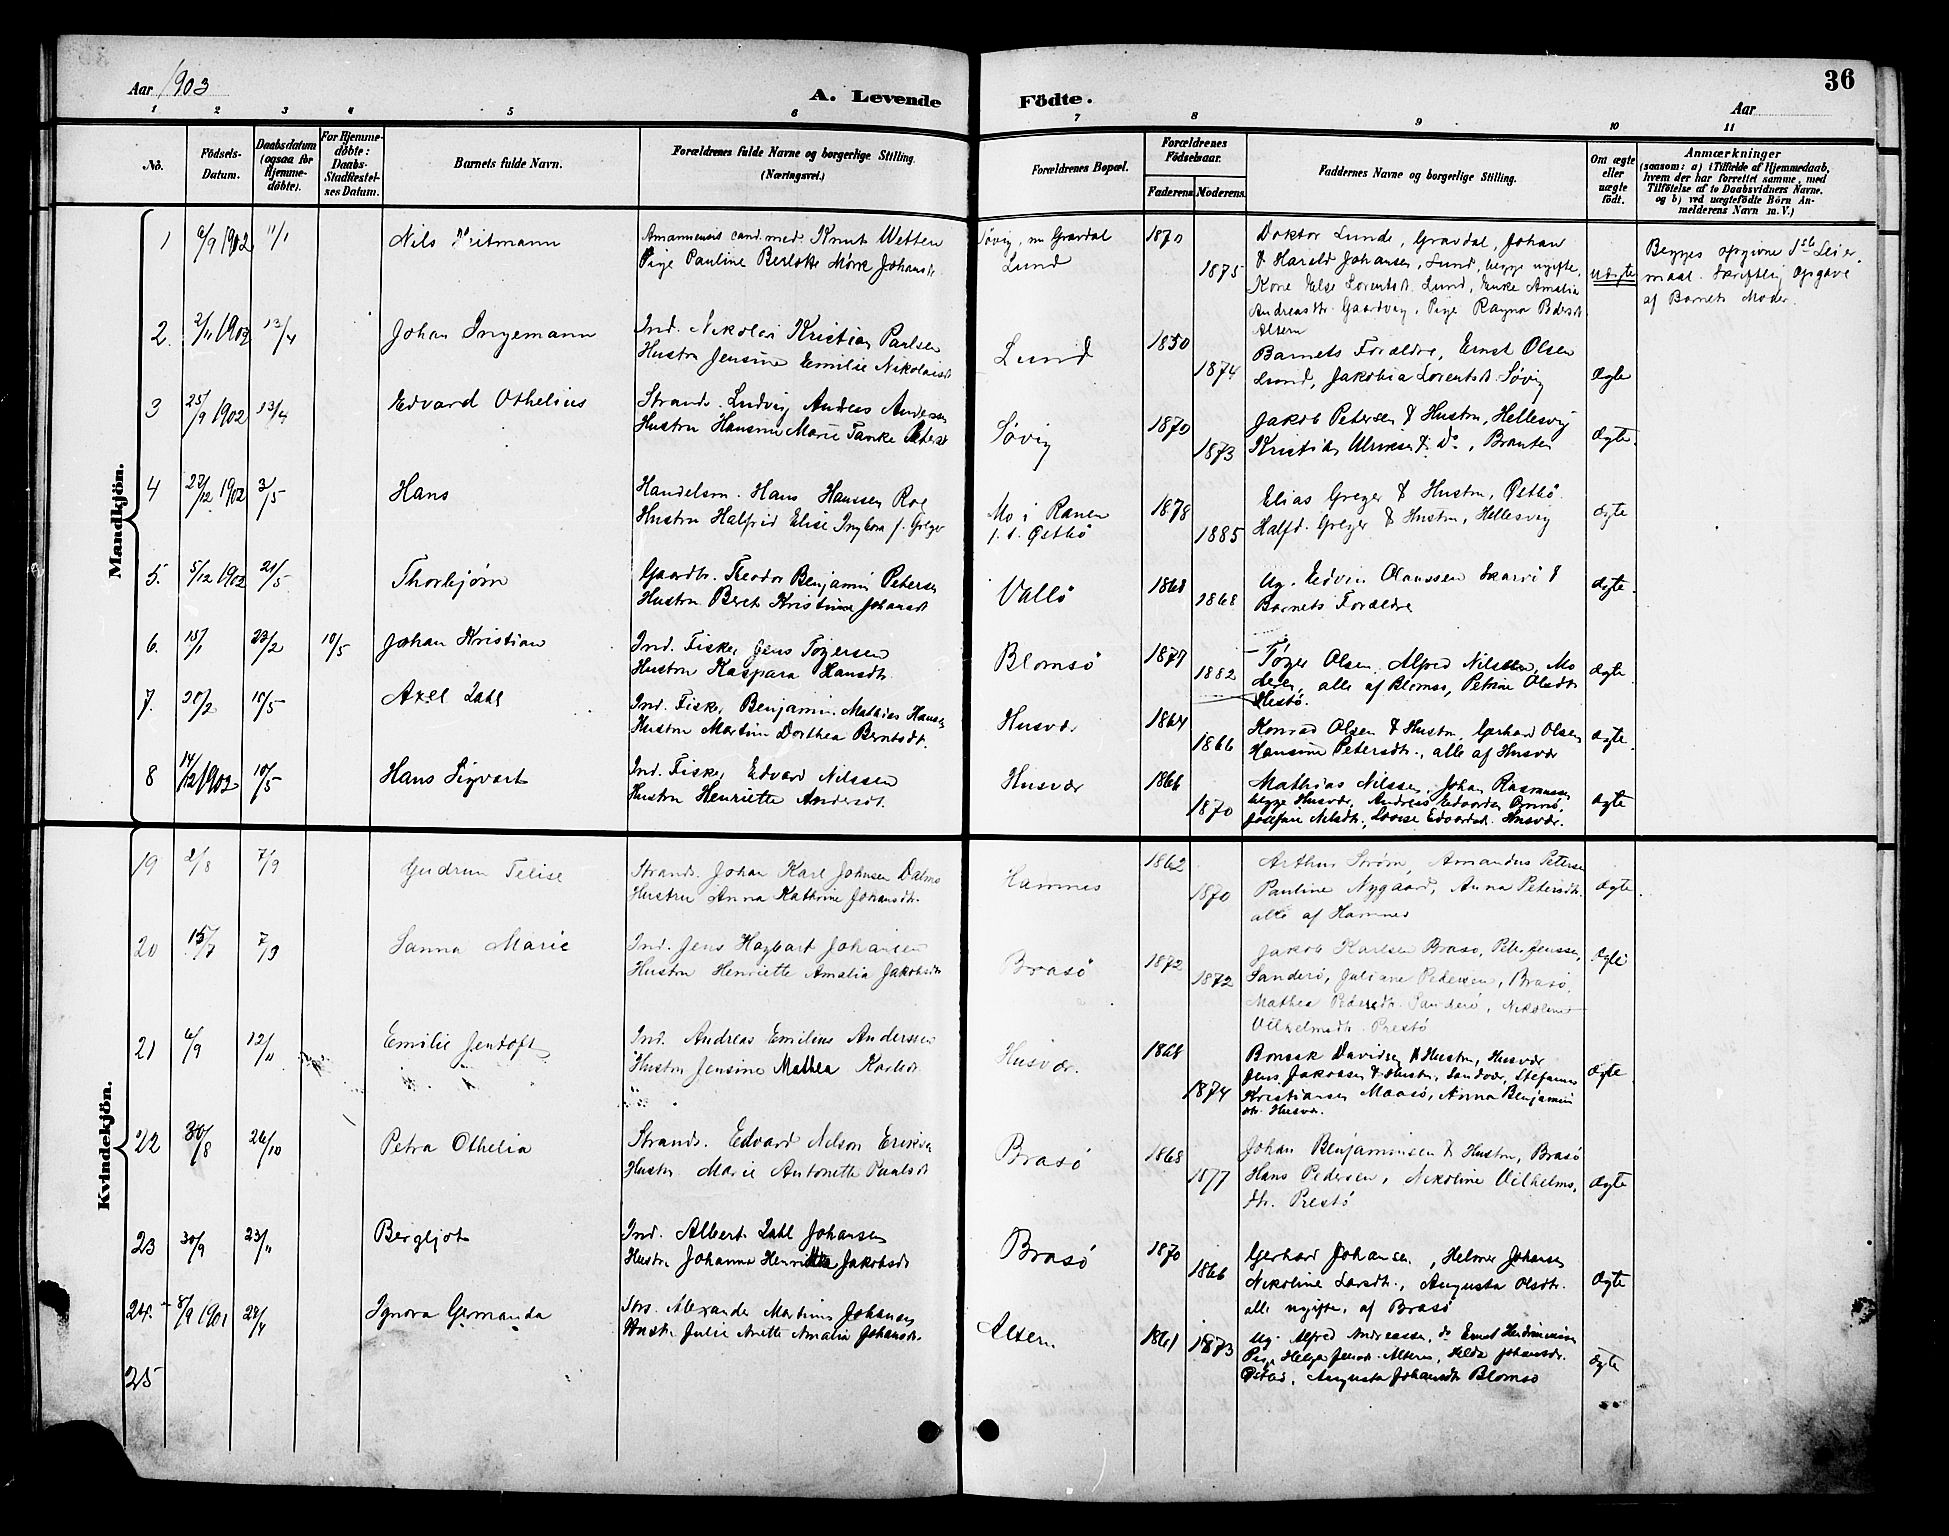 Aar 1903
A. Levende
Födte.
Aar
36
1 2 3 4 5 6 7 8 9 10 11
No.
Födsels-Datum.
Daabsdatum (ogsaa for Hjemme-döbte).
For Hjemme-döbte: Daabs-Stadfæstel-ses Datum.
Barnets fulde Navn.
Forældrenes fulde Navne og borgerlige Stilling.
(Næringsvei.)
Forældrenes Bopæl.
Forældrenes Födselsaar.
Faderens
Moderens.
Faddernes Navne og borgerlige Stilling.
Om ægte eller uægte født.
Anmærkninger
(saasom: a) i Tilfælde af Hjemmedaab,
hvem der har forrettet samme, med
Tilföielse af to Daabsvidners Navne.
og b) ved uægtefödte Börn An-
melderens Navn m. V.)
Mandkjön.
1 6/9 1902 11/1 Nils Heitmann
Amanuensis cand. med. Knut Wetten
Pige Pauline Berlotte Mørk Johansdt.
Søvig, nu Gravdal
Lund
1870 1875
Doktor Lunde, Gravdal, Johan
& Harald Johansen, Lund, begge ugifte,
Kone Else Lorentsdt. Lund, Enke Amalia
Andreasdtr. Gaardvig, Pige Ragna
Altern
uægte
Begges opgivne 1ste Leier-
maal. Skriftlig Opgave
af Barnets Moder.
2. 2/11 1902 13/4 Johan Ingemann
Ind. Nikolai Kristian Paulsen
Hustru Jensine Emilie Nikolaisdt
Lund
1850 1874
Barnets Forældre, Ernst Olsen
Lund, Jakobia Lorentsdt. Søvig
Ægte
3 25/9 1902 13/4 Edvard Othelius
Strands. Ludvig Andreas Andersen
Hustru Hansine Marie Tanke Petersdt
Søvig
1870 1873
Jakob Petersen & Hustru, Hellesvig
Kristian Ulriksen & Do, Brauten
Ægte.
4 23/12 1902 3/5 Hans
Handelsm. Hans Hanssen Roe
Hustru Halfrid Elise Ingbora f. Greger
Mo i Ranen
f. t. Østbø
1878 1885
Elias Greger & Hustru, Østbø.
Halfd. Greger & Hustru, Hellesvig
Ægte
5. 5/12 1902 21/5 Thorbjørn
Gaardbr. Teodor Benjamin Petersen
Hustru Beret Kristine Johansdt
Vallø
1868 1868
Ug. Edvin Olaussen Skarvø &
Barnets Forældre
Ægte.
6. 15/1 23/2 10/5 Johan Kristian
Ind. Fisker Jens Tøgersen
Hustru Kaspara Hansdt.
Blomsø
1877 1882
Tøger Olsen, Alfred Nilssen, Mo
deren, alle af Blomsø, Petrine Olsdt
Hestø.
Ægte.
7. 28/2 10/5 Axel Dahl
Ind. Fisker Benjamin Mathias Hansen
Hustru Martine Dorthea Berntsdt.
Husvær
1864 1866
Konrad Olsen & Hustru, Gerhard Olsen
Hansine Petersdt., alle af Husvær
Ægte.
8 14/12 1902 10/5 Hans Sigvart
Ind. Fisker Edvard Nilssen
Hustru Henriette Andersdt.
Husvær
1866 1870
Mathias Nilssen, Johan Rasmussen
begge Husvær, Andreas Edvardsen
Josefine Nilsdt., Lovise Edvardsdt. Husvær.
Ægte
Kvindekjön.
19 2/8 7/9 Gudrun Felise
Strands. Johan Karl Johnsen Dalmo
Hustru Anna Kathrine Johansdt.
Hamnes
1862 1870
Arthur Strøm, Amandus Petersen
Pauline Nygaard, Anna Petersdt.
alle af Hamnes
Ægte.
20 15/7 7/9 Sanna Marie
Ind. Jens Hagbart Johansen
Hustru Henriette Amalia Jakobsdt
Brasø
1872 1872
Jakob Karlsen Brasø, Peter Jenssen,
Sanderø, Juliane Pedersen, Brasø,
Mathea Pedersdt. Sanderø, Nikoline
Vilhelmsdt. Prestø
Ægte
21 6/9 12/11 Emilie Jentoft
Ind. Andreas Emilius Anderssen
Hustru Jensine Mathea Karlsdt.
Husvær.
1868 1874
Bonsak Davidsen & Hustru, Husvær
Jens Jakobsen & Hustru, Sandvær, Stefanus
Kristiansen Maasø, Anna Benjamin
dt. Husvær.
Ægte.
22 30/8 26/10 Petra Othelia
Strands. Edvard Nelson Eriksen
Hustr. Marie Antonette Paulsdt
Brasø
1868 1877
Johan Benjaminsen & Hustru, Brasø
Hans Pedersen, Nikoline Vilhelms,
dt. Prestø
Ægte
23 30/9 23/11 Bergljot
Ind. Albert Dahl Johansen
Hustru Johanna Henrikka Jakobsdt
Brasø
1870 1866
Gerhard Johansen, Helmer Johansen
Nikoline Larsdt., Augusta Olsdt.
alle ugifte, af Brasø
Ægte
24. 8/9 1901 28/4 Ignora Germanda
Alexander Martinus Johansen
Hustr. Julie Anette Amalia Johansdt.
Altern
1861 1873
Ug. Alfred Andreassen, do Ernst
Pige Helga Jensdt. Altern, Hilda Johansdt.
Østad, Augusta Johansdt Blomsø
Ægte
25